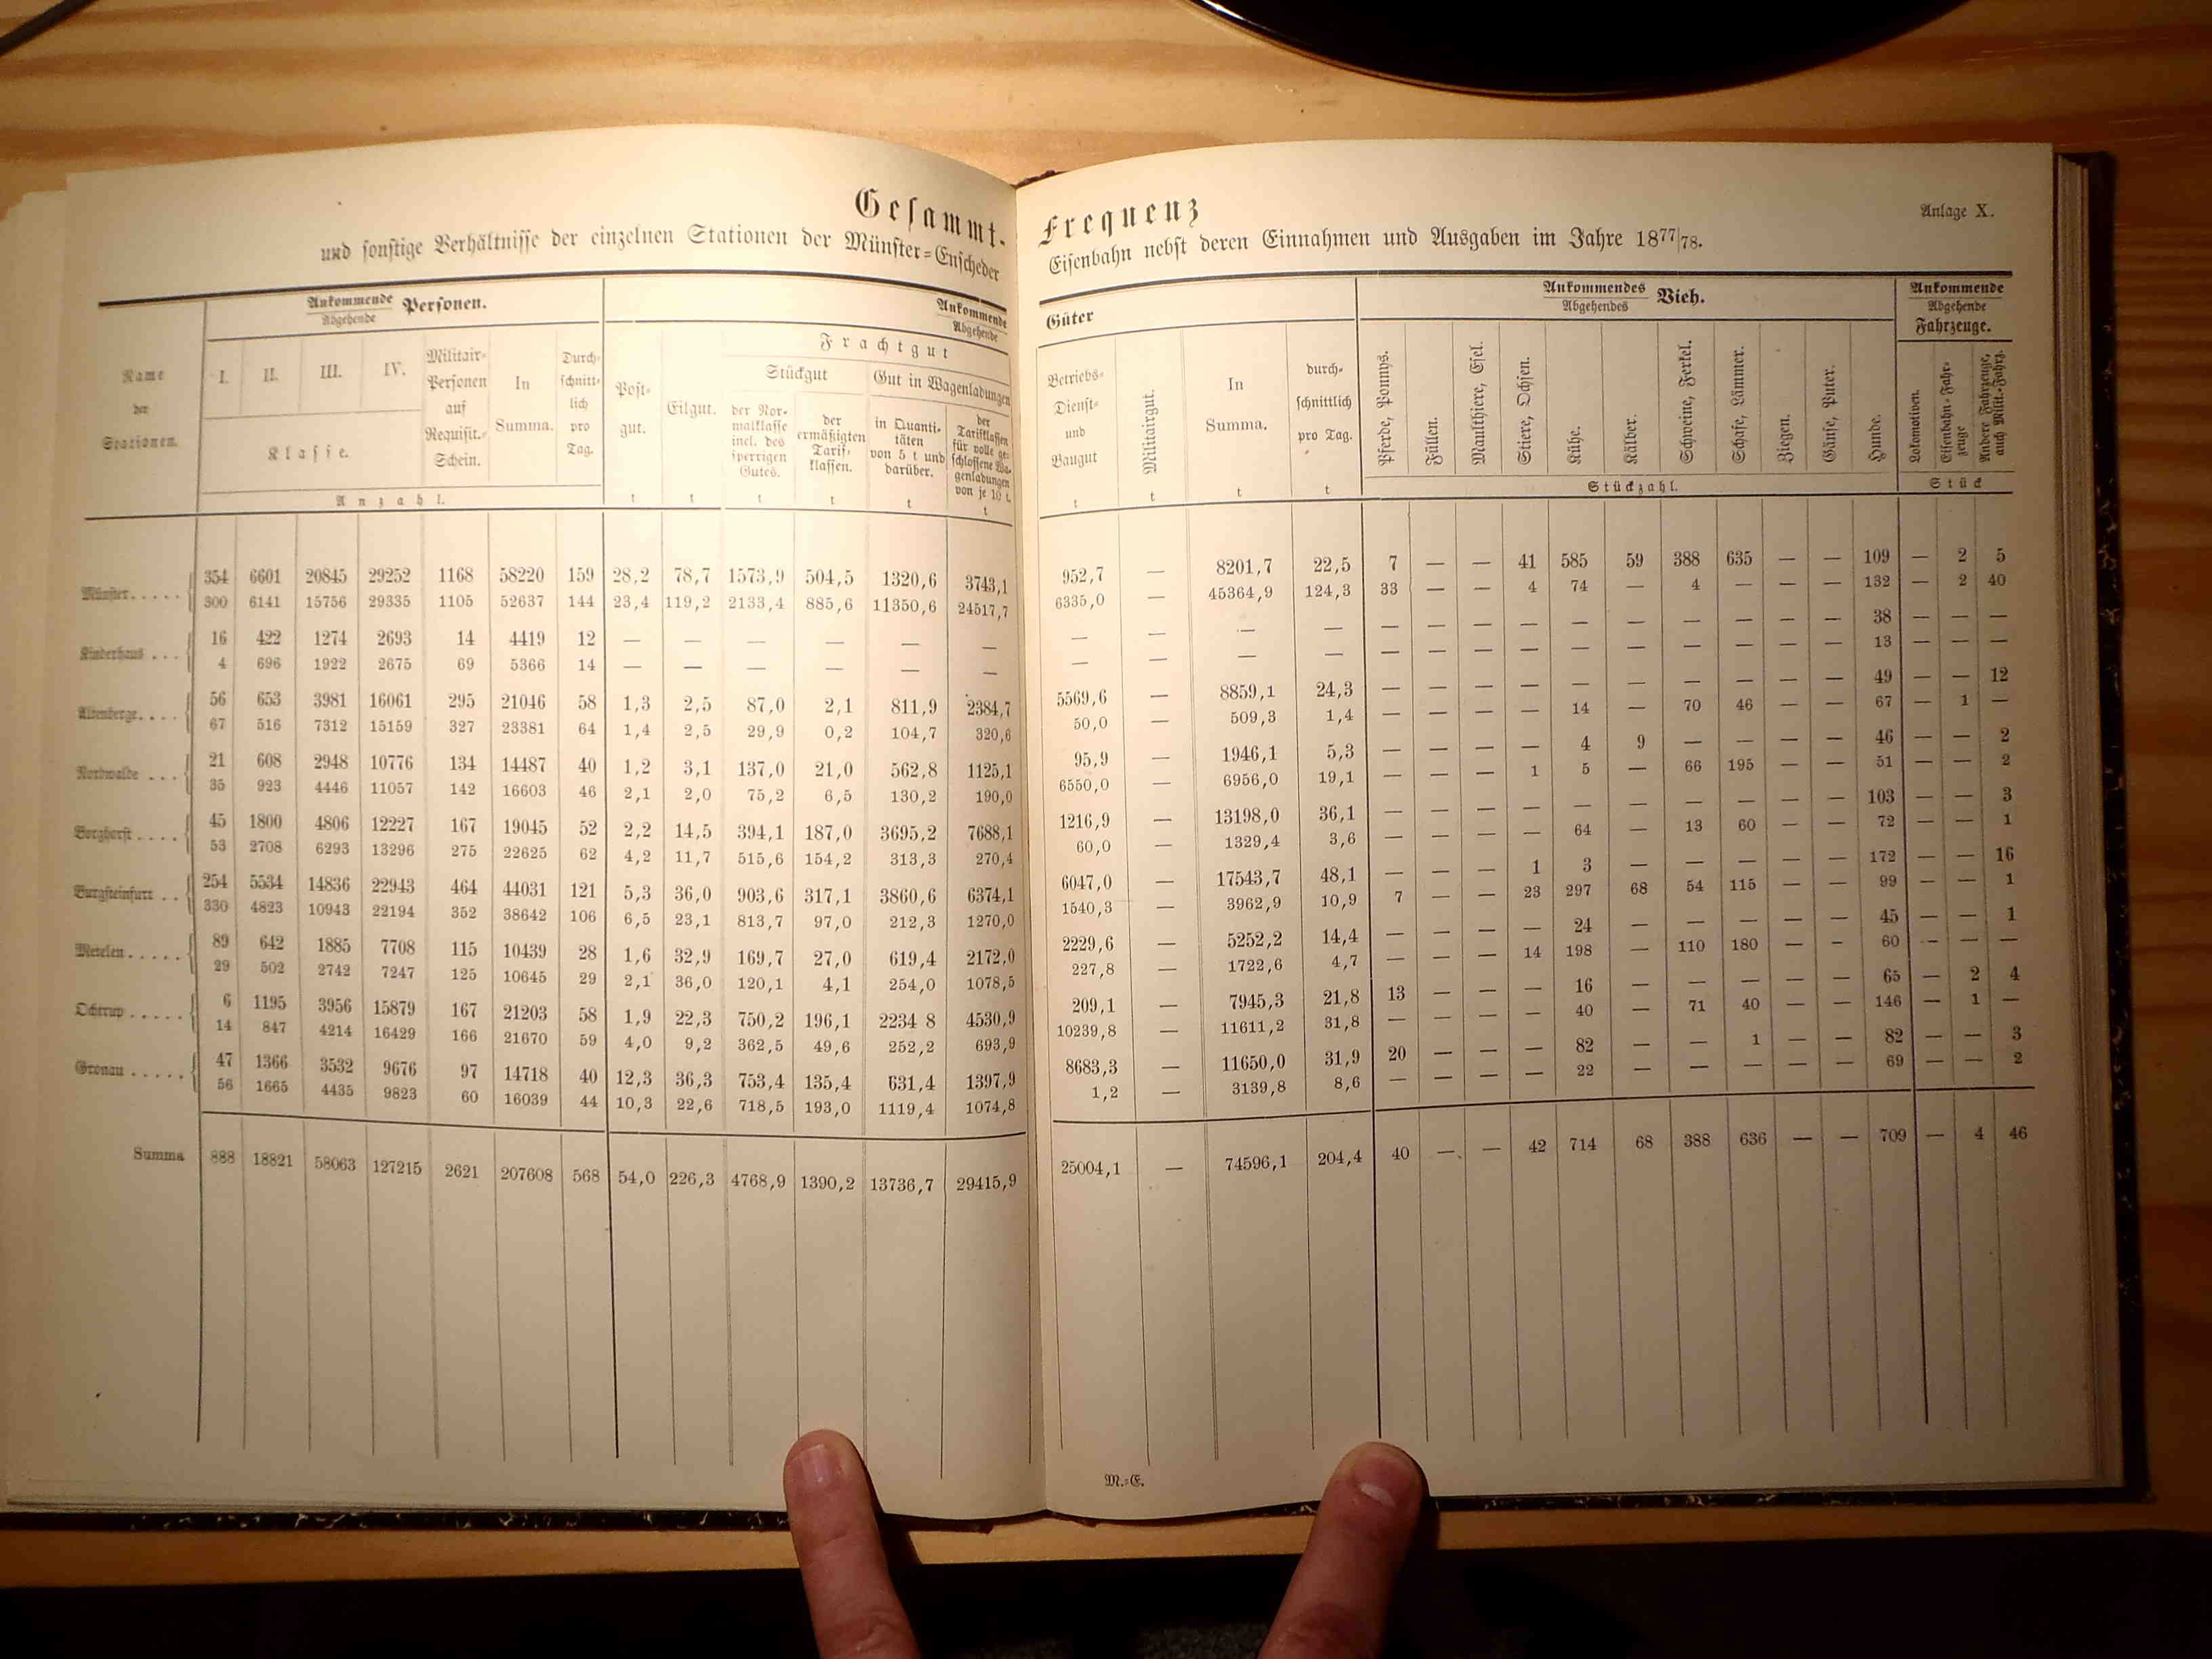 Gesammt-Frequenz
Anlage X.
und sonstige Verhältnisse der einzelnen Stationen der Münster-Enscheder Eisenbahn nebst deren Einnahmen und Ausgaben im Jahre 1877/78.
Name der Stationen.
Ankommende Abgehende Personen.
I. II. III. IV.
Klasse.
Militair-Personen auf Requisit.-Schein.
In Summa.
Durchschnittlich pro Tag.
Anzahl.
Ankommende Abgehende Güter
Postgut. t
Eilgut. t
Frachtgut
Stückgut
der Normalklasse incl. des sperrigen Gutes. t
der ermäßigten Tarifklassen. t
Gut in Wagenladungen
in Quantitäten von 5 t und darüber. t
der Tarifklassen für volle geschlossene Wagenladungen von je 10 t. t
Betriebs-Dienst- und Baugut t
Militairgut. t
In Summa. t
durchschnittlich pro Tag. t
Ankommendes Abgehendes Vieh.
Pferde, Ponnys.
Füllen.
Maulthiere, Esel.
Stiere, Ochsen.
Kühe.
Kälber.
Schweine, Ferkel.
Schafe, Lämmer.
Ziegen.
Gänse, Puter.
Hunde.
Stückzahl.
Ankommende Abgehende Fahrzeuge.
Lokomotiven.
Eisenbahn-Fahrzeuge
Andere Fahrzeuge, auch Milit.-Fahrz.
Stück
Münster..... 354 6601 20845 29252 1168 58220 159 28,2 78,7 1573,9 504,5 1320,6 3743,1 952,7 — 8201,7 22,5 7 — — 41 585 59 388 635 — — 109 — 2 5
300 6141 15756 29335 1105 52637 144 23,4 119,2 2133,4 885,6 11350,6 24517,7 6335,0 — 45364,9 124,3 33 — — 4 74 — 4 — — — 132 — 2 40
Kinderhaus ... 16 422 1274 2693 14 4419 12 — — — — — — — — — — — — — — — — — — — — 38 — — —
4 696 1922 2675 69 5366 14 — — — — — — — — — — — — — — — — — — — — 13 — — —
Altenberge.... 56 653 3981 16061 295 21046 58 1,3 2,5 87,0 2,1 811,9 2384,7 5569,6 — 8859,1 24,3 — — — — — — — — — — 49 — — 12
67 516 7312 15159 327 23381 64 1,4 2,5 29,9 0,2 104,7 320,6 50,0 — 509,3 1,4 — — — — 14 — 70 46 — — 67 — 1 —
Nordwalde ... 21 608 2948 10776 134 14487 40 1,2 3,1 137,0 21,0 562,8 1125,1 95,9 — 1946,1 5,3 — — — — 4 9 — — — — 46 — — 2
35 923 4446 11057 142 16603 46 2,1 2,0 75,2 6,5 130,2 190,0 6550,0 — 6956,0 19,1 — — — 1 5 — 66 195 — — 51 — — 2
Borghorst .... 45 1800 4806 12227 167 19045 52 2,2 14,5 394,1 187,0 3695,2 7688,1 1216,9 — 13198,0 36,1 — — — — — — — — — — 103 — — 3
53 2708 6293 13296 275 22625 62 4,2 11,7 515,6 154,2 313,3 270,4 60,0 — 1329,4 3,6 — — — — 64 — 13 60 — — 72 — — 1
Burgsteinfurt .. 254 5534 14836 22943 464 44031 121 5,3 36,0 903,6 317,1 3860,6 6374,1 6047,0 — 17543,7 48,1 — — — 1 3 — — — — — 172 — — 16
330 4823 10943 22194 352 38642 106 6,5 23,1 813,7 97,0 212,3 1270,0 1540,3 — 3962,9 10,9 7 — — 23 297 68 54 115 — — 99 — — 1
Metelen..... 89 642 1885 7708 115 10439 28 1,6 32,9 169,7 27,0 619,4 2172,0 2229,6 — 5252,2 14,4 — — — — 24 — — — — — 45 — — 1
29 502 2742 7247 125 10645 29 2,1 36,0 120,1 4,1 254,0 1078,5 227,8 — 1722,6 4,7 — — — 14 198 — 110 180 — - 60 - — —
Ochtrup ..... 6 1195 3956 15879 167 21203 58 1,9 22,3 750,2 196,1 2234 8 4530,9 209,1 — 7945,3 21,8 13 — — — 16 — — — — — 65 — 2 4
14 847 4214 16429 166 21670 59 4,0 9,2 362,5 49,6 252,2 693,9 10239,8 — 11611,2 31,8 — — — — 40 — 71 40 — — 146 — 1 —
Gronau ..... 47 1366 3532 9676 97 14718 40 12,3 36,3 753,4 135,4 631,4 1397,9 8683,3 — 11650,0 31,9 20 — — — 82 — — 1 — — 82 — — 3
56 1665 4435 9823 60 16039 44 10,3 22,6 718,5 193,0 1119,4 1074,8 1,2 — 3139,8 8,6 — — — — 22 — — — — — 69 — — 2
Summa 888 18821 58063 127215 2621 207608 568 54,0 226,3 4768,9 1390,2 13736,7 29415,9 25004,1 — 74596,1 204,4 40 — — 42 714 68 388 636 — — 709 — 4 46
M.-E.